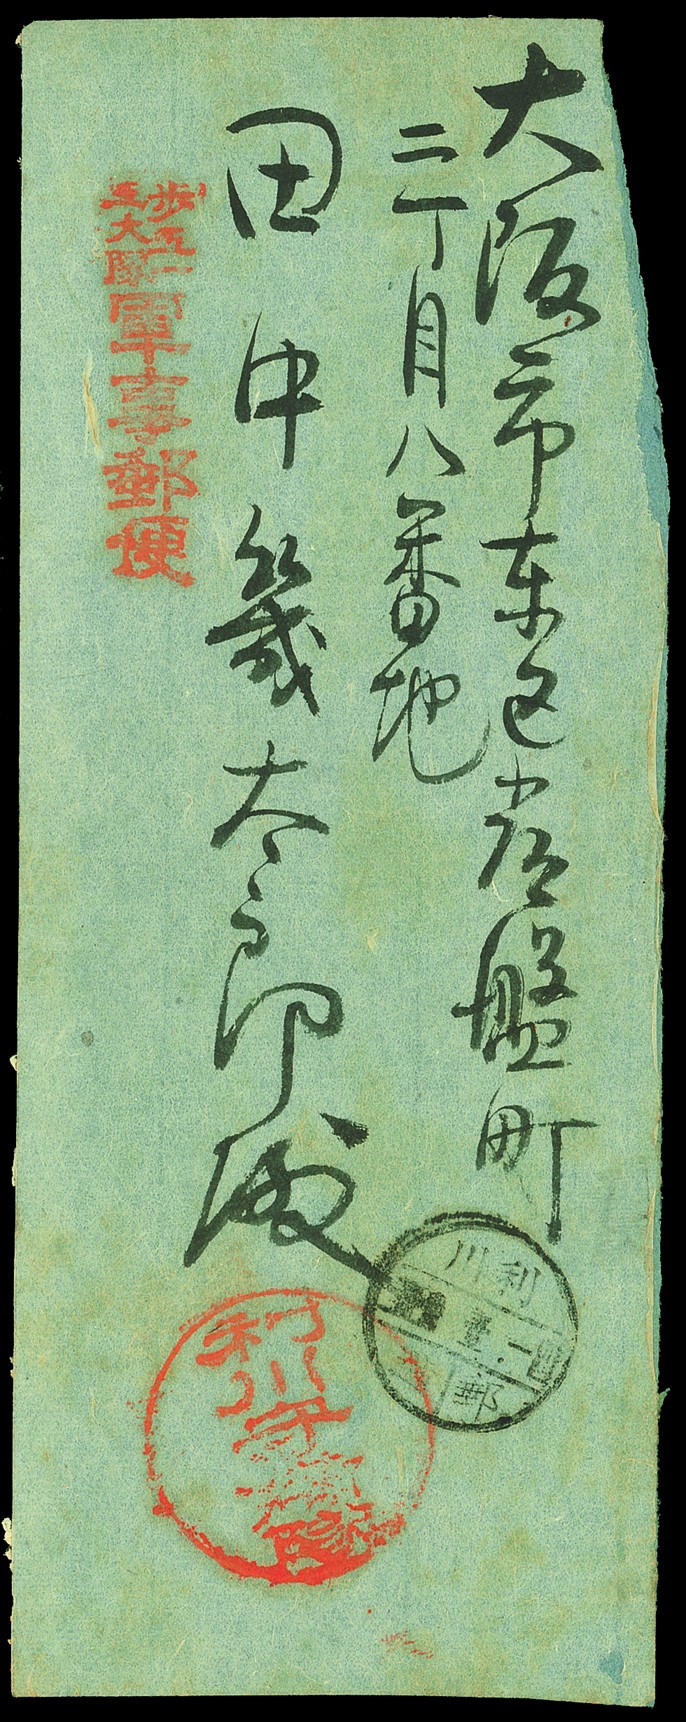 大阪市東区常盤町
二丁目八番地
田中幾太郎殿
歩五一
大隊
軍事郵便
利川守備隊
利川
郵